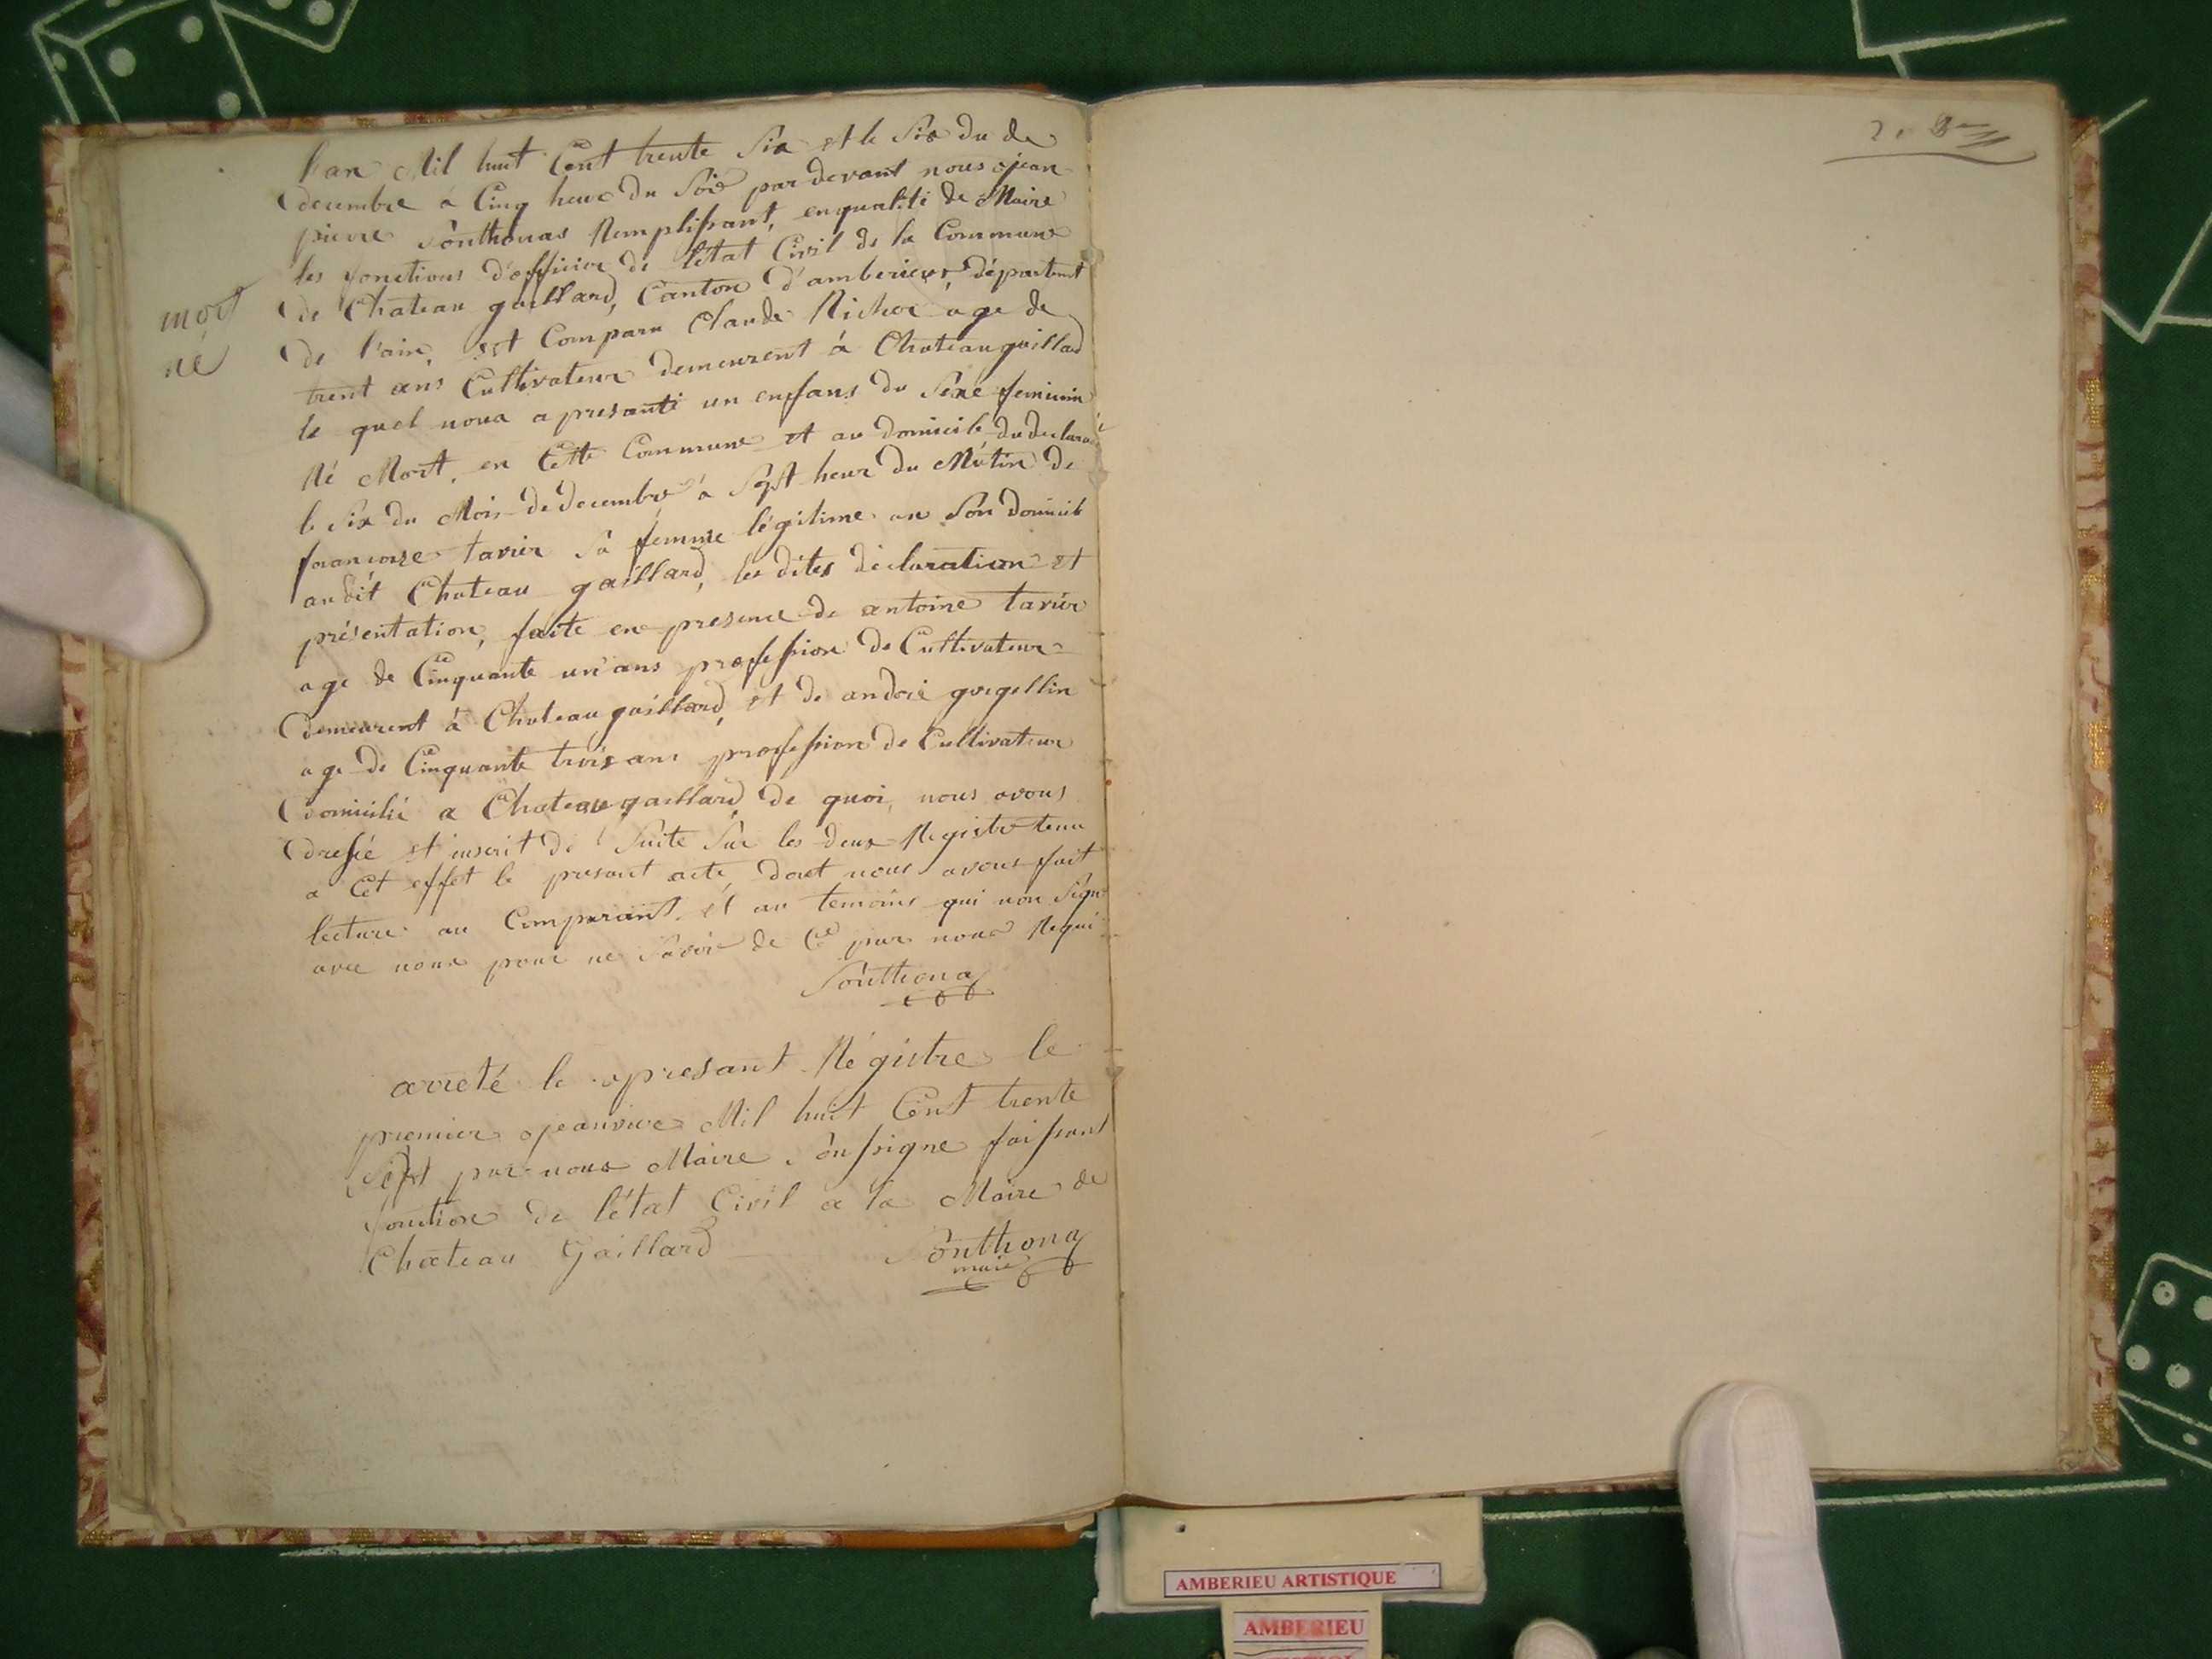 mort
né
l'an Mil huit Cent trente Six et le Six du de
decembre à Cinq heure du Soir par devant nous jean
pierre Sonthonas Remplissant, en qualité de Maire
les fonctions d'officier de l'état Civil de la Commune
de Chateau gaillard, Canton d'amberieux, départemt
de l'ain, est Comparu Claude age de
trent ans Cultivateur demeurent à Chateaugaillard
le quel nous a presanté un enfans du Sexe feminin
Né Mort, en Cette Commune et au domicile du declarant
le Six du Mois de decembre à Sept heur du Matin de
francoise tavier Sa femme légitime an Son domicile
audit Chateau gaillard, les dites déclaration et
présentation, faite en presence de antoine tavier
age de Cinquante un ans profession de Cultivateur
demeurent à Chateaugaillard, et de andré gorgellin
age de Cinquante trois ans profession de Cultivateur
domicilié a Chateaugaillard de quoi, nous avons
dressé et inscrit de Suite Sur les deux Registre tenu
a Cet effet le presant acte, dont nous avons fait
lecture au Comparant et au temoins qui non Signé
avec nous pour ne Savoir de Ce par nous Requi
Sonthona
arreté le presant Régistre le
premier jeanvier Mil huit Cent trente
Sept par nous Maire Soussigne faissant
fonction de l'état Civil a la Maire de
Chateau Gaillard
Sonthona
maire
AMBERIEU ARTISTIQUE
AMBERIEU